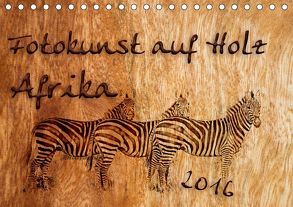 Fotokunst auf Holz
Afrika
2016